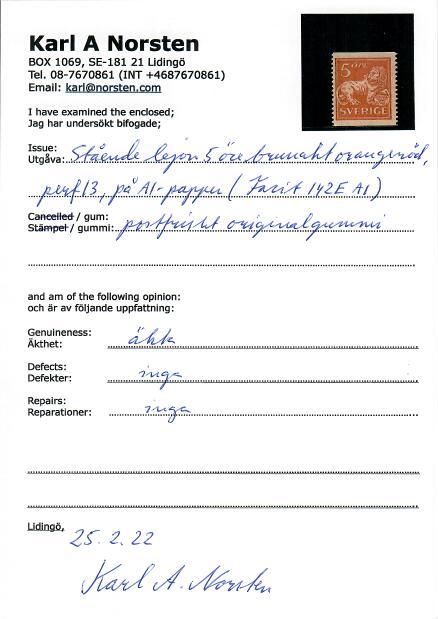 Karl A Norsten
BOX 1069, SE-181 21 Lidingö
Tel. 08-7670861 (INT +4687670861)
Email: karl@norsten.com
5 ÖRE
SVERIGE
I have examined the enclosed;
Jag har undersökt bifogade;
Issue:
Utgåva: Stående lejon 5 öre brunaktorangeröd,
perf 13, på A1-papper (Facit 142E A1)
Cancelled / gum:
Stämpel / gummi: postfriskt originalgummi
and am of the following opinion:
och är av följande uppfattning:
Genuineness:
Äkthet: äkta
Defects:
Defekter: inga
Repairs:
Reparationer: inga
Lidingö, 25.2.22
Karl A. Norsten